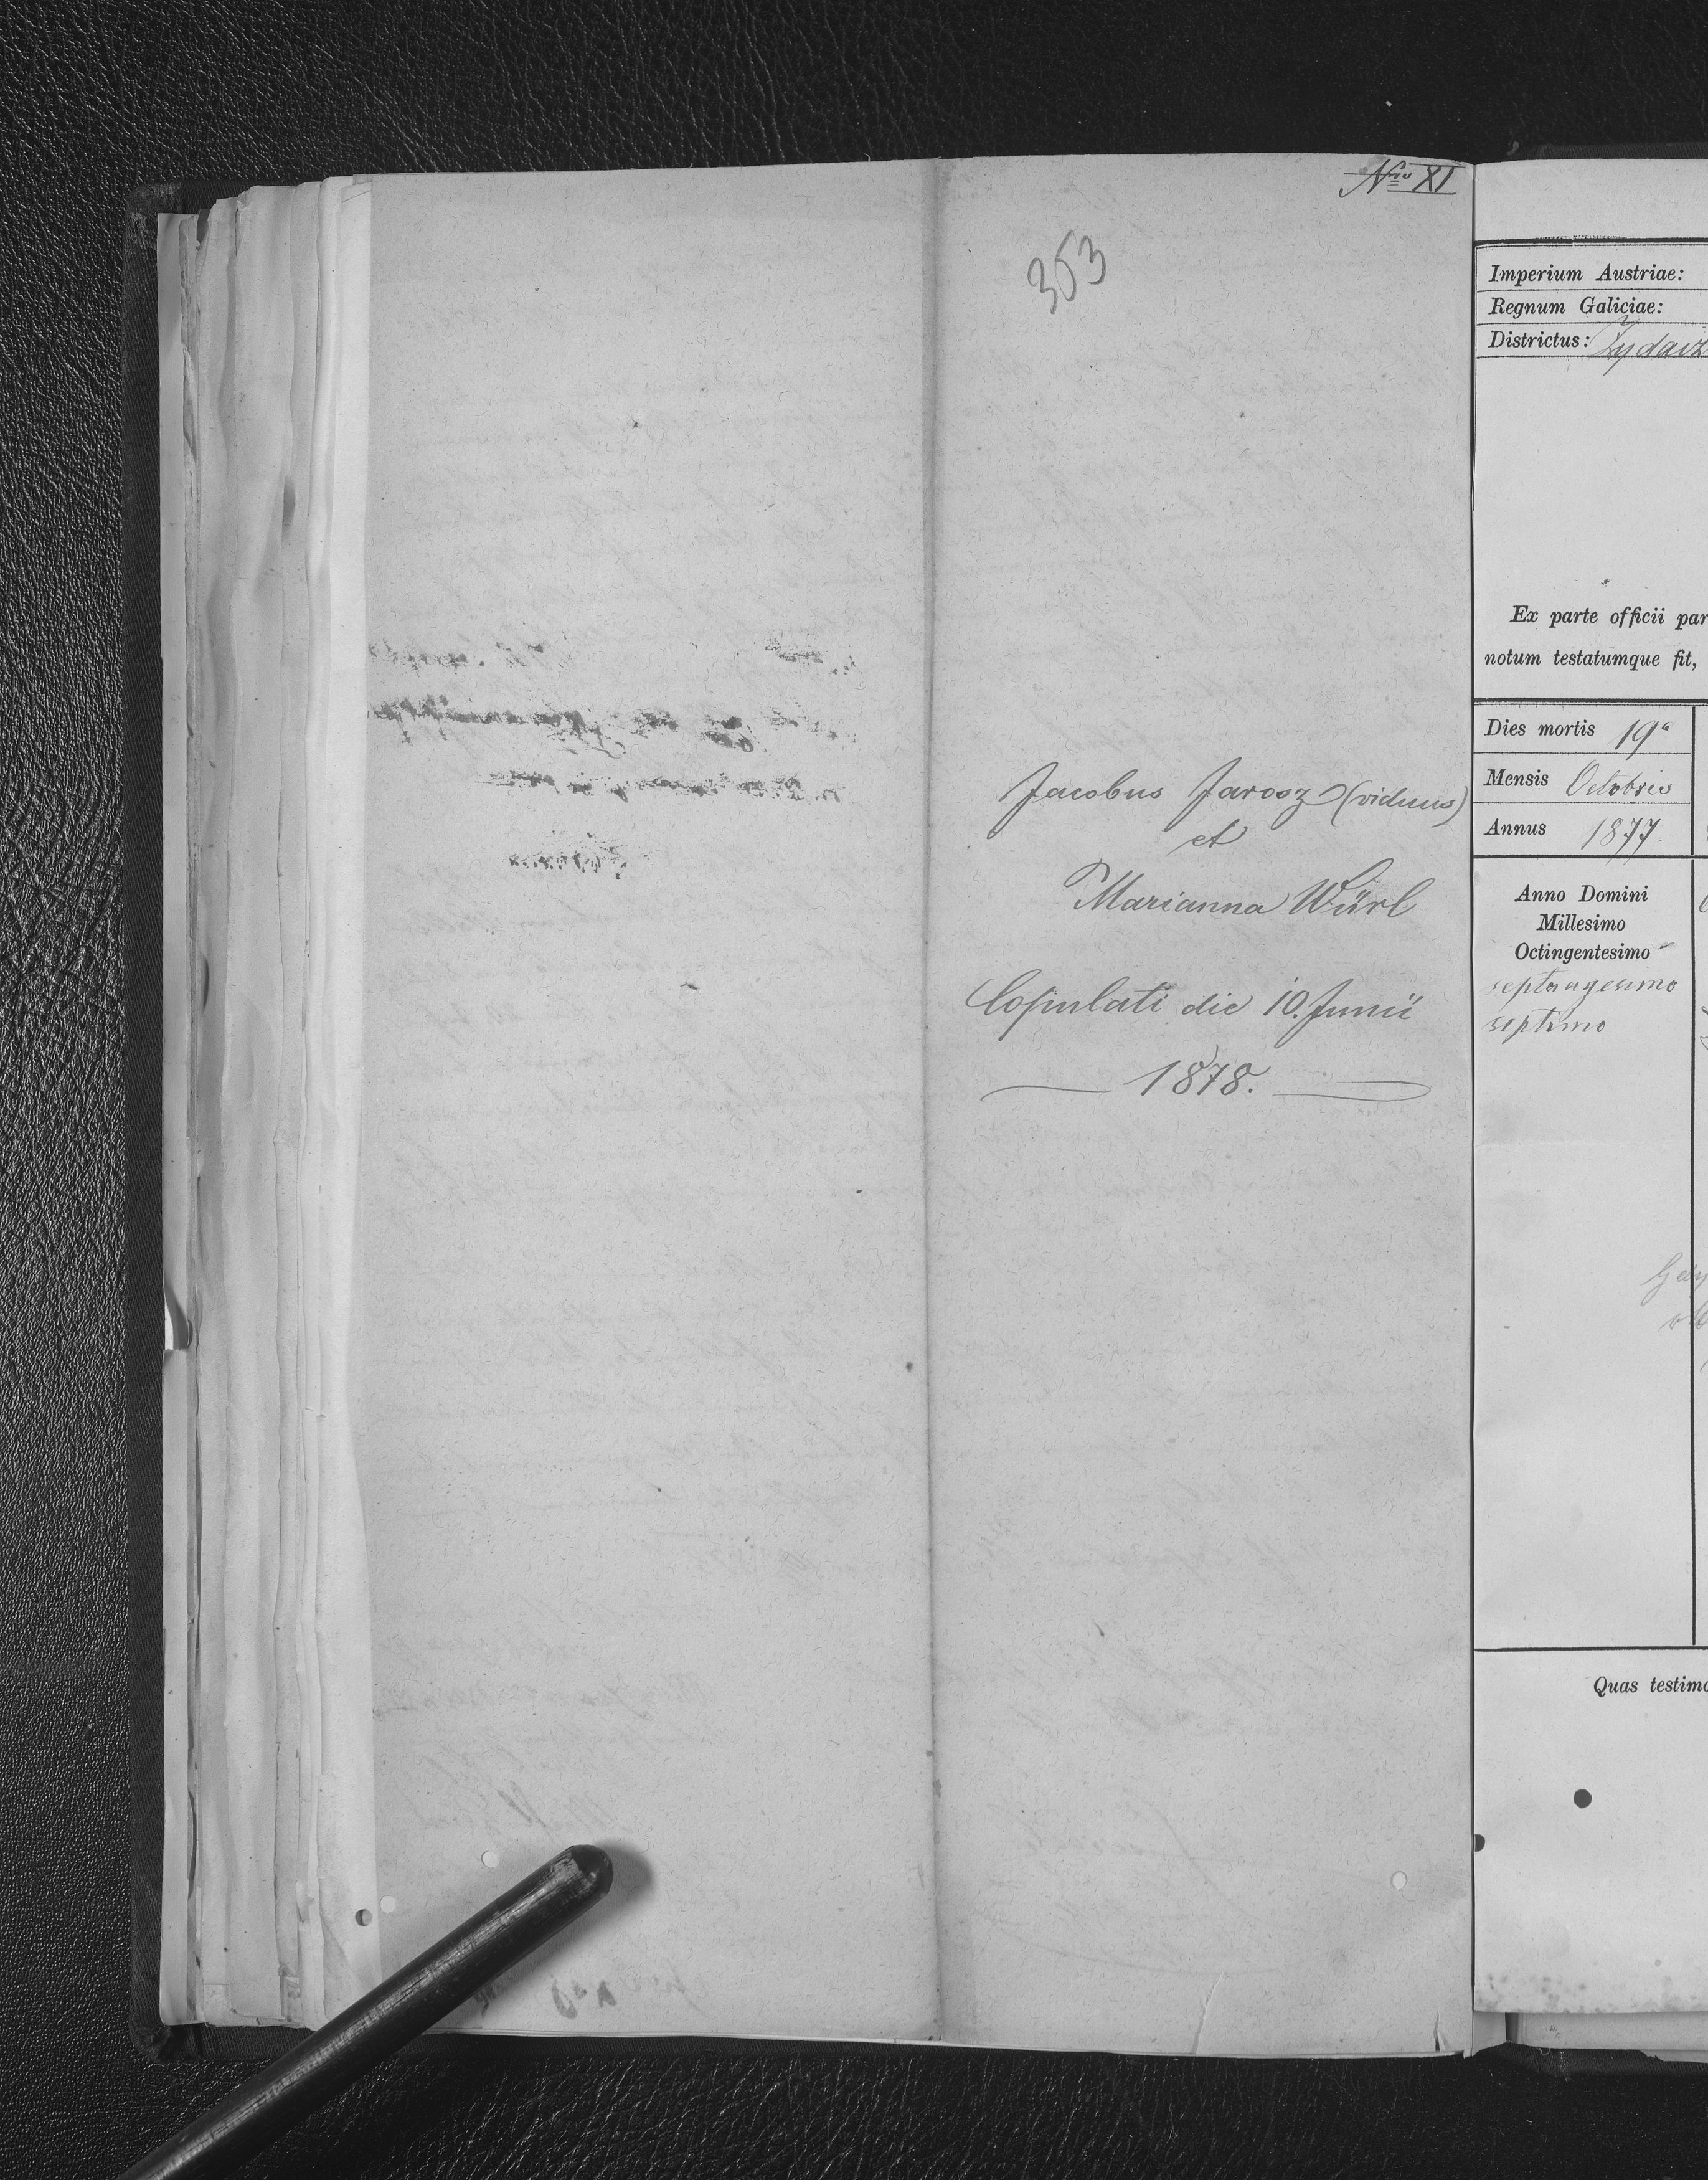 Nro XI
353
Jacobus Jarosz (viduus)
et
Marianna Würl
Copulati die 10. Junii
1878.
Imperium Austriae:
Regnum Galiciae:
Districtus:
Ex parte officii par
notum testatumque fit,
Dies mortis 19a
Mensis Octobris
Annus 1877.
Anno Domini
Millesimo
Octingentesimo
septuagesimo
septimo
Quas testimo